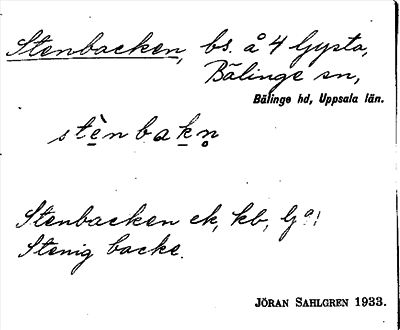 Stenbacken, bs. å 4 Gysta,
Bälinge sn,
Bälinge hd, Uppsala län.
stè̱nbak̠n̥
Stenbacken ek, kb, lj a!
Stenig backe.
JÖRAN SAHLGREN 1933.